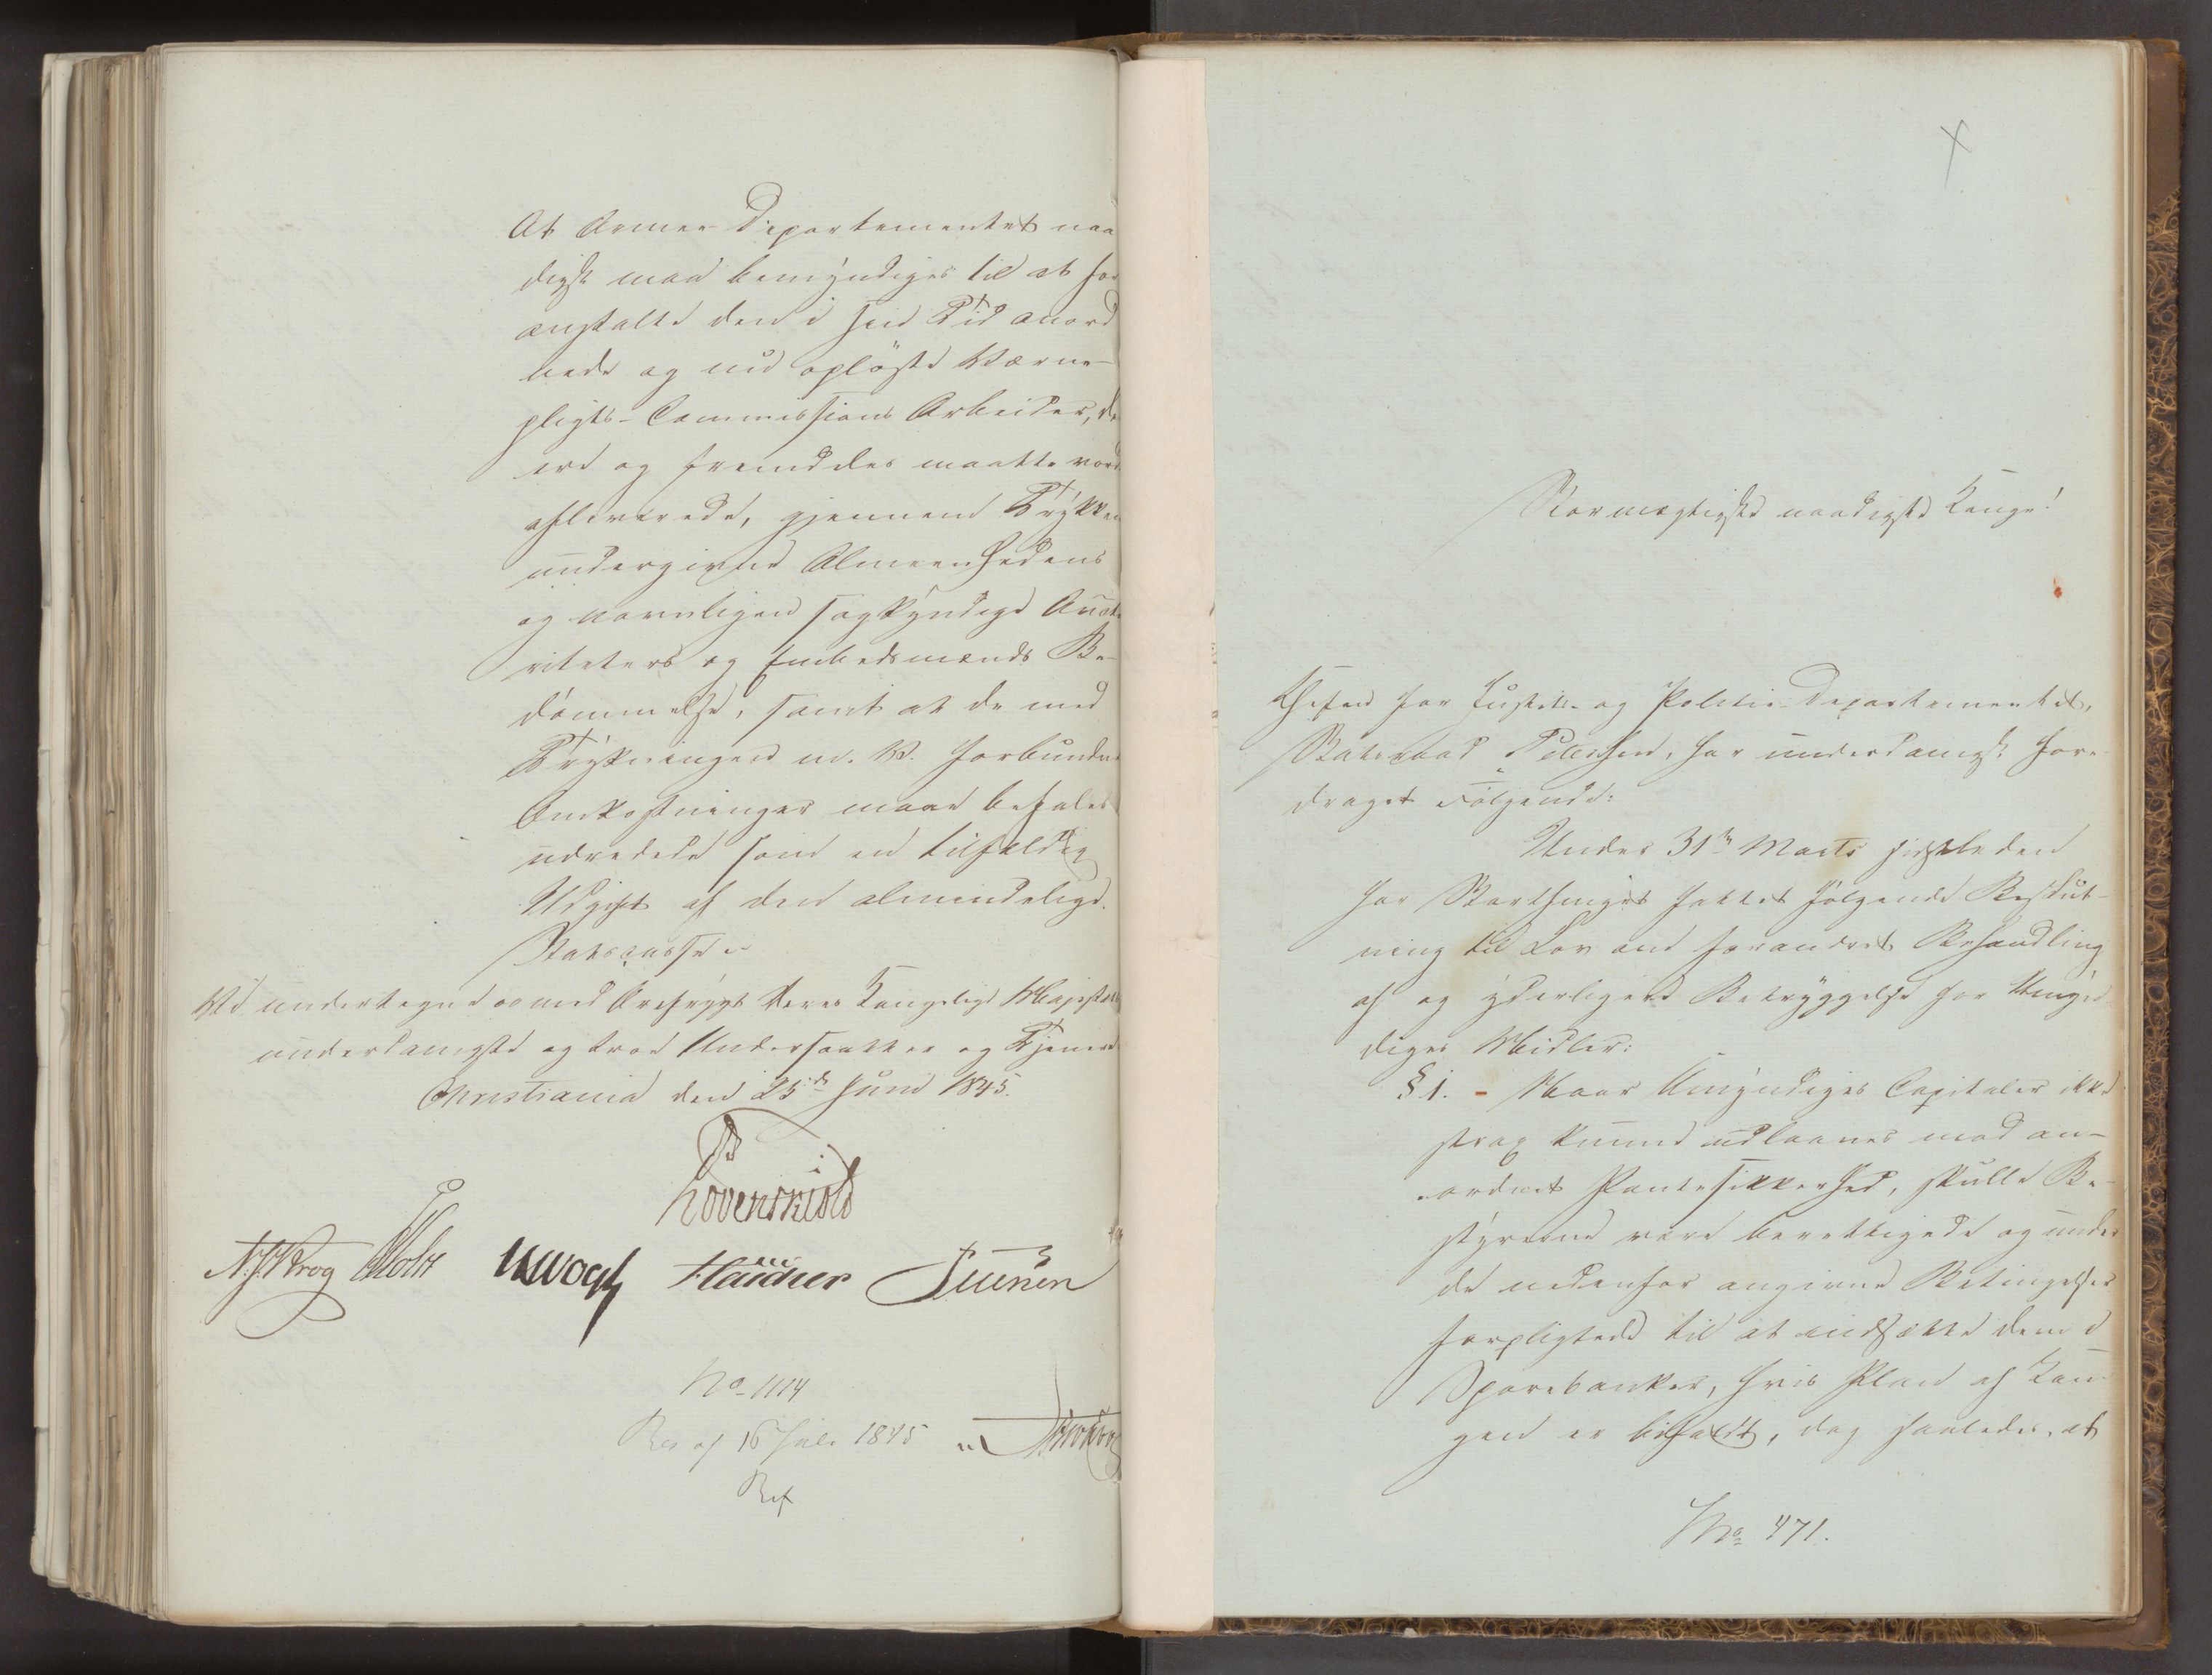 At Armee-Departementet naa
digst maa bemyndiges til at for
anstalte den i sin Tid anord
nede og nu opløste Værne-
pligts-Commissions Arbeider, de
ere og fremdeles maatte vorde
afleverede, gjennem Trykken
undergivne Almeenhedens
og navnligen sagkyndige Aucto
riteters og Embedsmænds Be-
dømmelse, samt at de med
Trykningen m. V. forbundne
Omkostninger maae befales
udredede som en tilfældig
Udgift af den almindelige
Statscasse.
Vi undertegne os med Ærefrygt Deres Kongelige Majestæts
underdanigste og troe Undersaatter og Tjenere
Christiania den 25de Juni 1845.
Løvenskiold
N. J. Krog Holst JHVogt Flåuer Suren
No 1114
Res af 16 Juli 1845
Ref
Stormægtigste naadigste Konge!
Chefen for Justits- og Politie-Departementet,
Statsraad Petersen, har underdanigst fore-
draget Følgende:
Under 31te Marts sidstleden
har Storthinget fattet følgende Beslut-
ning til Lov om forandret Behandling
af og yderligere Betryggelse for Umyn
diges Midler:
§ 1. - Naar Umyndiges Capitaler ikke
strax kunne udlaanes mod an-
ordnet Pantesikkerhed, skulle Be-
styrerne være berettigede og under
de nedenfor angivne Betingelser
forpligtede til at indsætte dem i
Sparebanker, hvis Plan af Kon-
gen er bifaldt, dog saaledes, at
No 471.